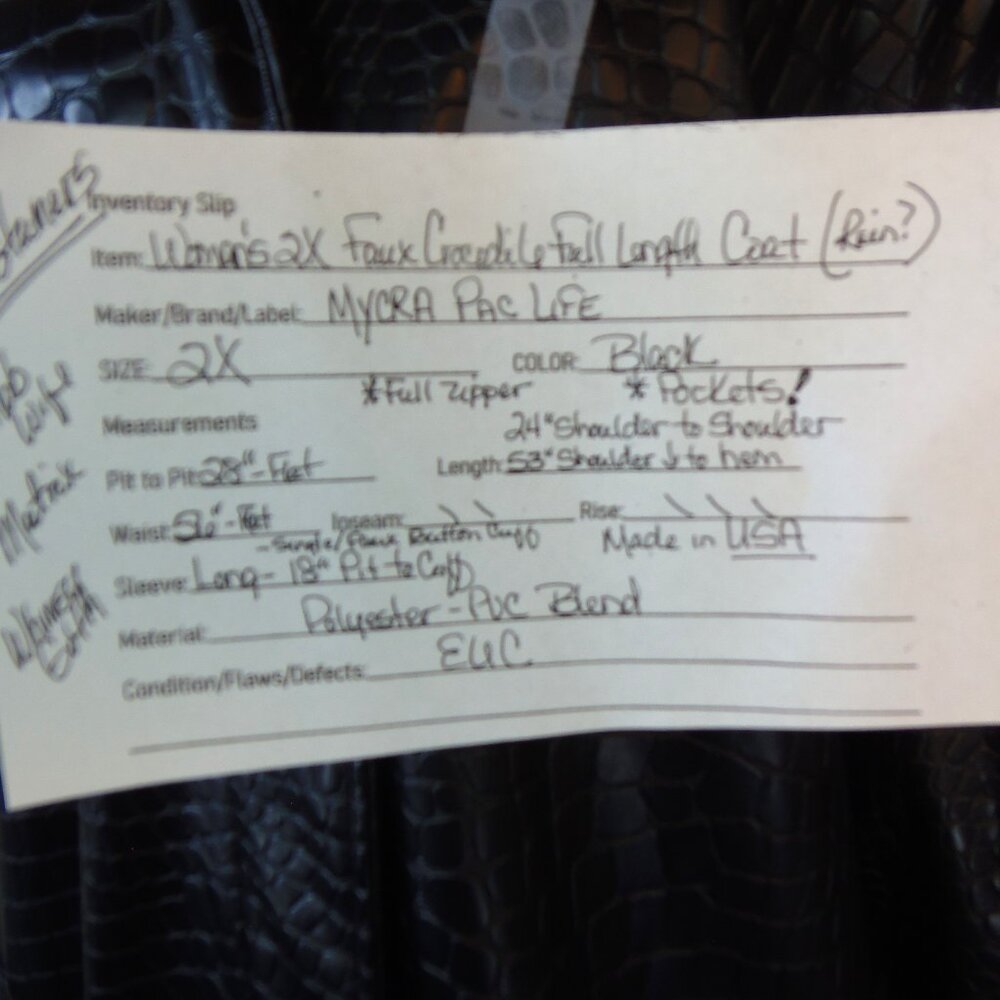 Inventory Slip
Item: Women's 2X Faux Crocodile Full Length Coat (Rain?)
Maker/Brand/Label: MYCRA PAC LIFE
SIZE: 2X COLOR: Black
*Full Zipper * Pockets!
Measurements 24" Shoulder to Shoulder
Pit to Pit: 28"-Flat Length: 53" Shoulder ↓ to hem
Waist: Flat Inseam: \ \ Rise: \ \ \
-Single/Faux Button Cuff Made in USA
Sleeve: Long - 18" Pit to Cuff
Material: Polyester-PVC Blend
Condition/Flaws/Defects: EUC
Matrix